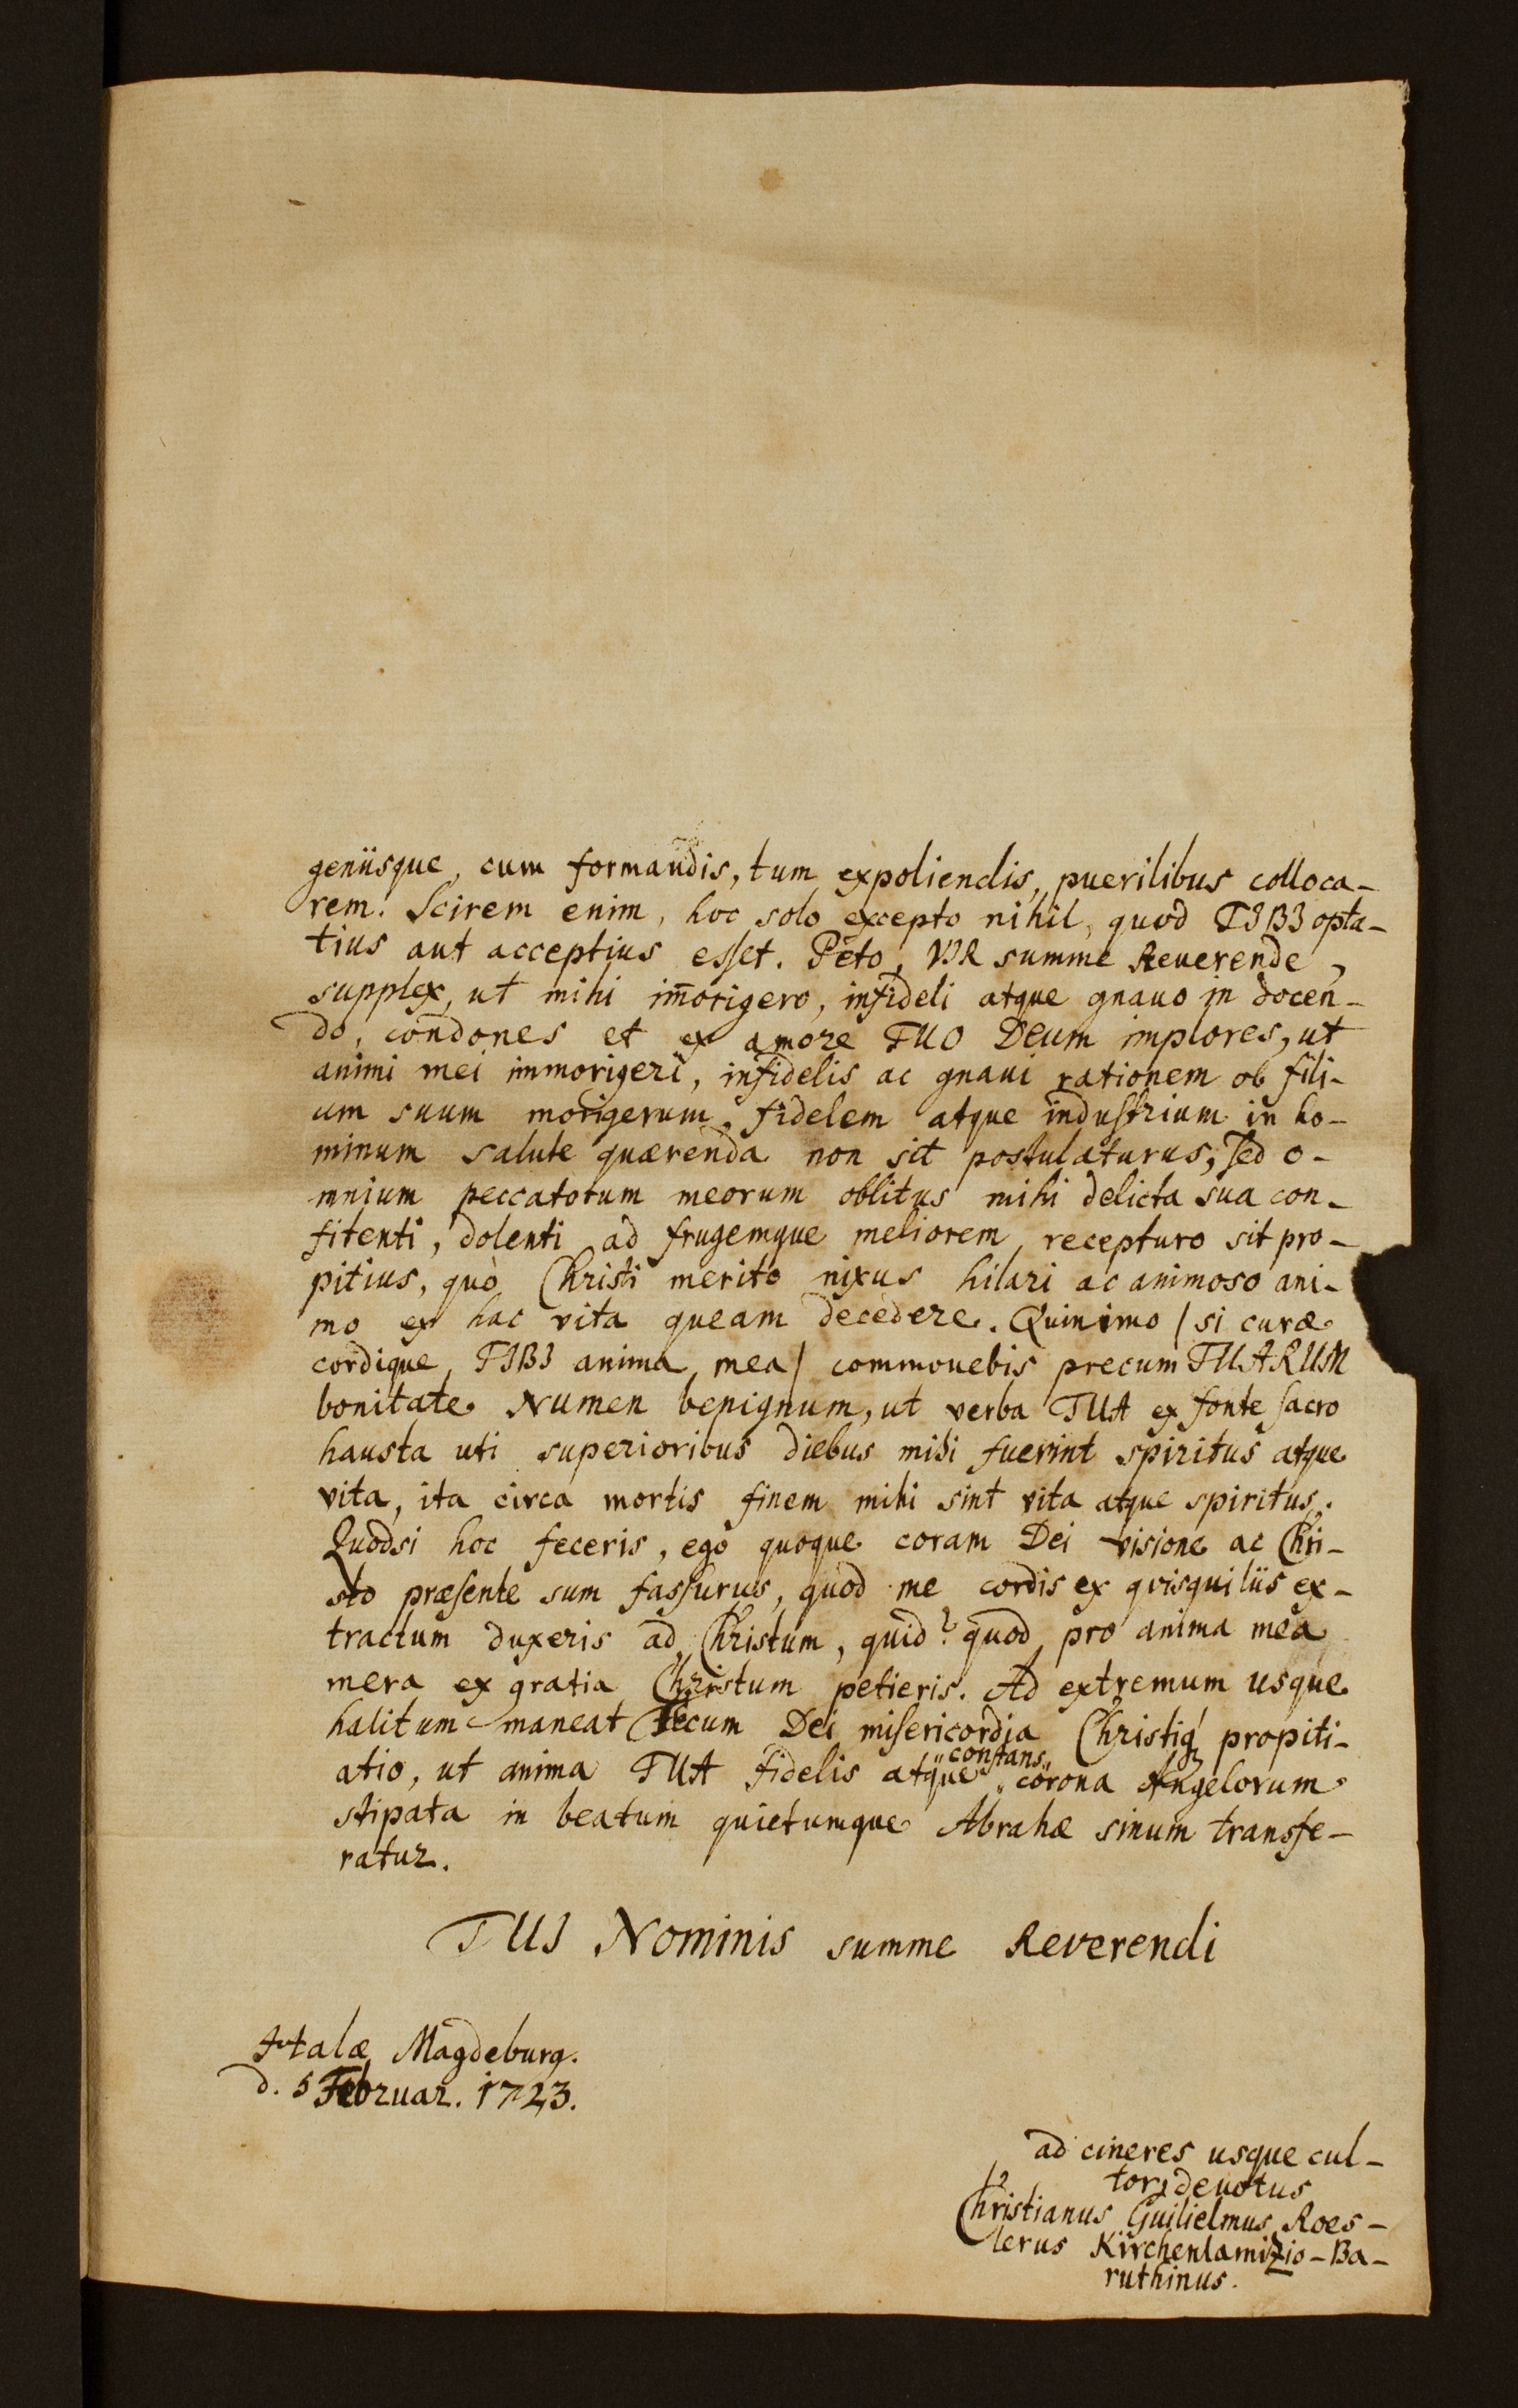 geniisque, cum formandis, tum expoliendis, puerilibus colloca-
rem. Scirem enim, hoc solo excepto nihil, quod TIBI opta-
tius aut acceptius esset. Peto, VIR summe Reuerende,
supplex, ut mihi im̄origero, infideli atque gnauo in docen-
do, condones et ex amore TUO Deum implores, ut
animi mei immorigeri, infidelis ac gnaui rationem ob fili-
um suum morigerum, fidelem atque industrium in ho-
minum salute quærenda non sit postulaturus, sed o-
mnium peccatorum meorum oblitus mihi delicta sua con-
fitenti, dolenti ad frugemque meliorem recepturo sit pro-
pitius, quò Christi merito nixus hilari ac animoso ani-
mo ex hac vita queam decedere. Quinimo / si curæ
cordique TIBI anima mea / commouebis precum TUARUM
bonitate Numen benignum, ut verba TUA ex fonte sacro
hausta uti superioribus diebus mihi fuerint spiritus atque
vita, ita circa mortis finem mihi sint vita atque spiritus.
Quodsi hoc feceris, ego quoque coram Dei visione ac Chri-
sto præsente sum fassurus, quod me cordis ex quisquiliis ex-
tractum duxeris ad Christum, quid? quod pro anima mea
mera ex gratia Christum petieris. Ad extremum usque
halitum maneat Tecum Dei misericordia Christiq́ propiti-
atio, ut anima TUA fidelis atque constans corona Angelorum
stipata in beatum quietumque Abrahæ sinum transfe-
ratur.
TUI Nominis summe Reverendi
Halæ Magdeburg.
d. 5 Februar. 1723.
ad cineres usque cul-
tor devotus
Christianus Guilielmus Roes-
lerus Kirchenlamizio-Ba-
ruthinus.